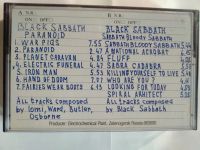 A N.R.
B N.R.
BLACK SABBATH
PARANOID
1. WAR PIGS 7.55
2. PARANOID 2.47
3. PLANET CARAVAN 4.24
4. ELECTRIC FUNERAL 4.47
5. IRON MAN 5.53
6. HAND OF DOOM 7.07
7. FAIRIES WEAR BOOTS 6.13
All tracks composed
by Iomi, Ward, Butler,
Osborne
BLACK SABBATH
SABBATH BLOODY SABBATH
SABBATH BLOODY SABBATH 5.44
A NATIONAL ACROBAT
FLUFF
SABBRA CADABRA
KILLING YOURSELF TO LIVE
WHO ARE YOU?
LOOKING FOR TODAY
SPIRAL ARCHITECT
All tracks composed
by Black Sabbath
Producer: Electrochemical Plant,